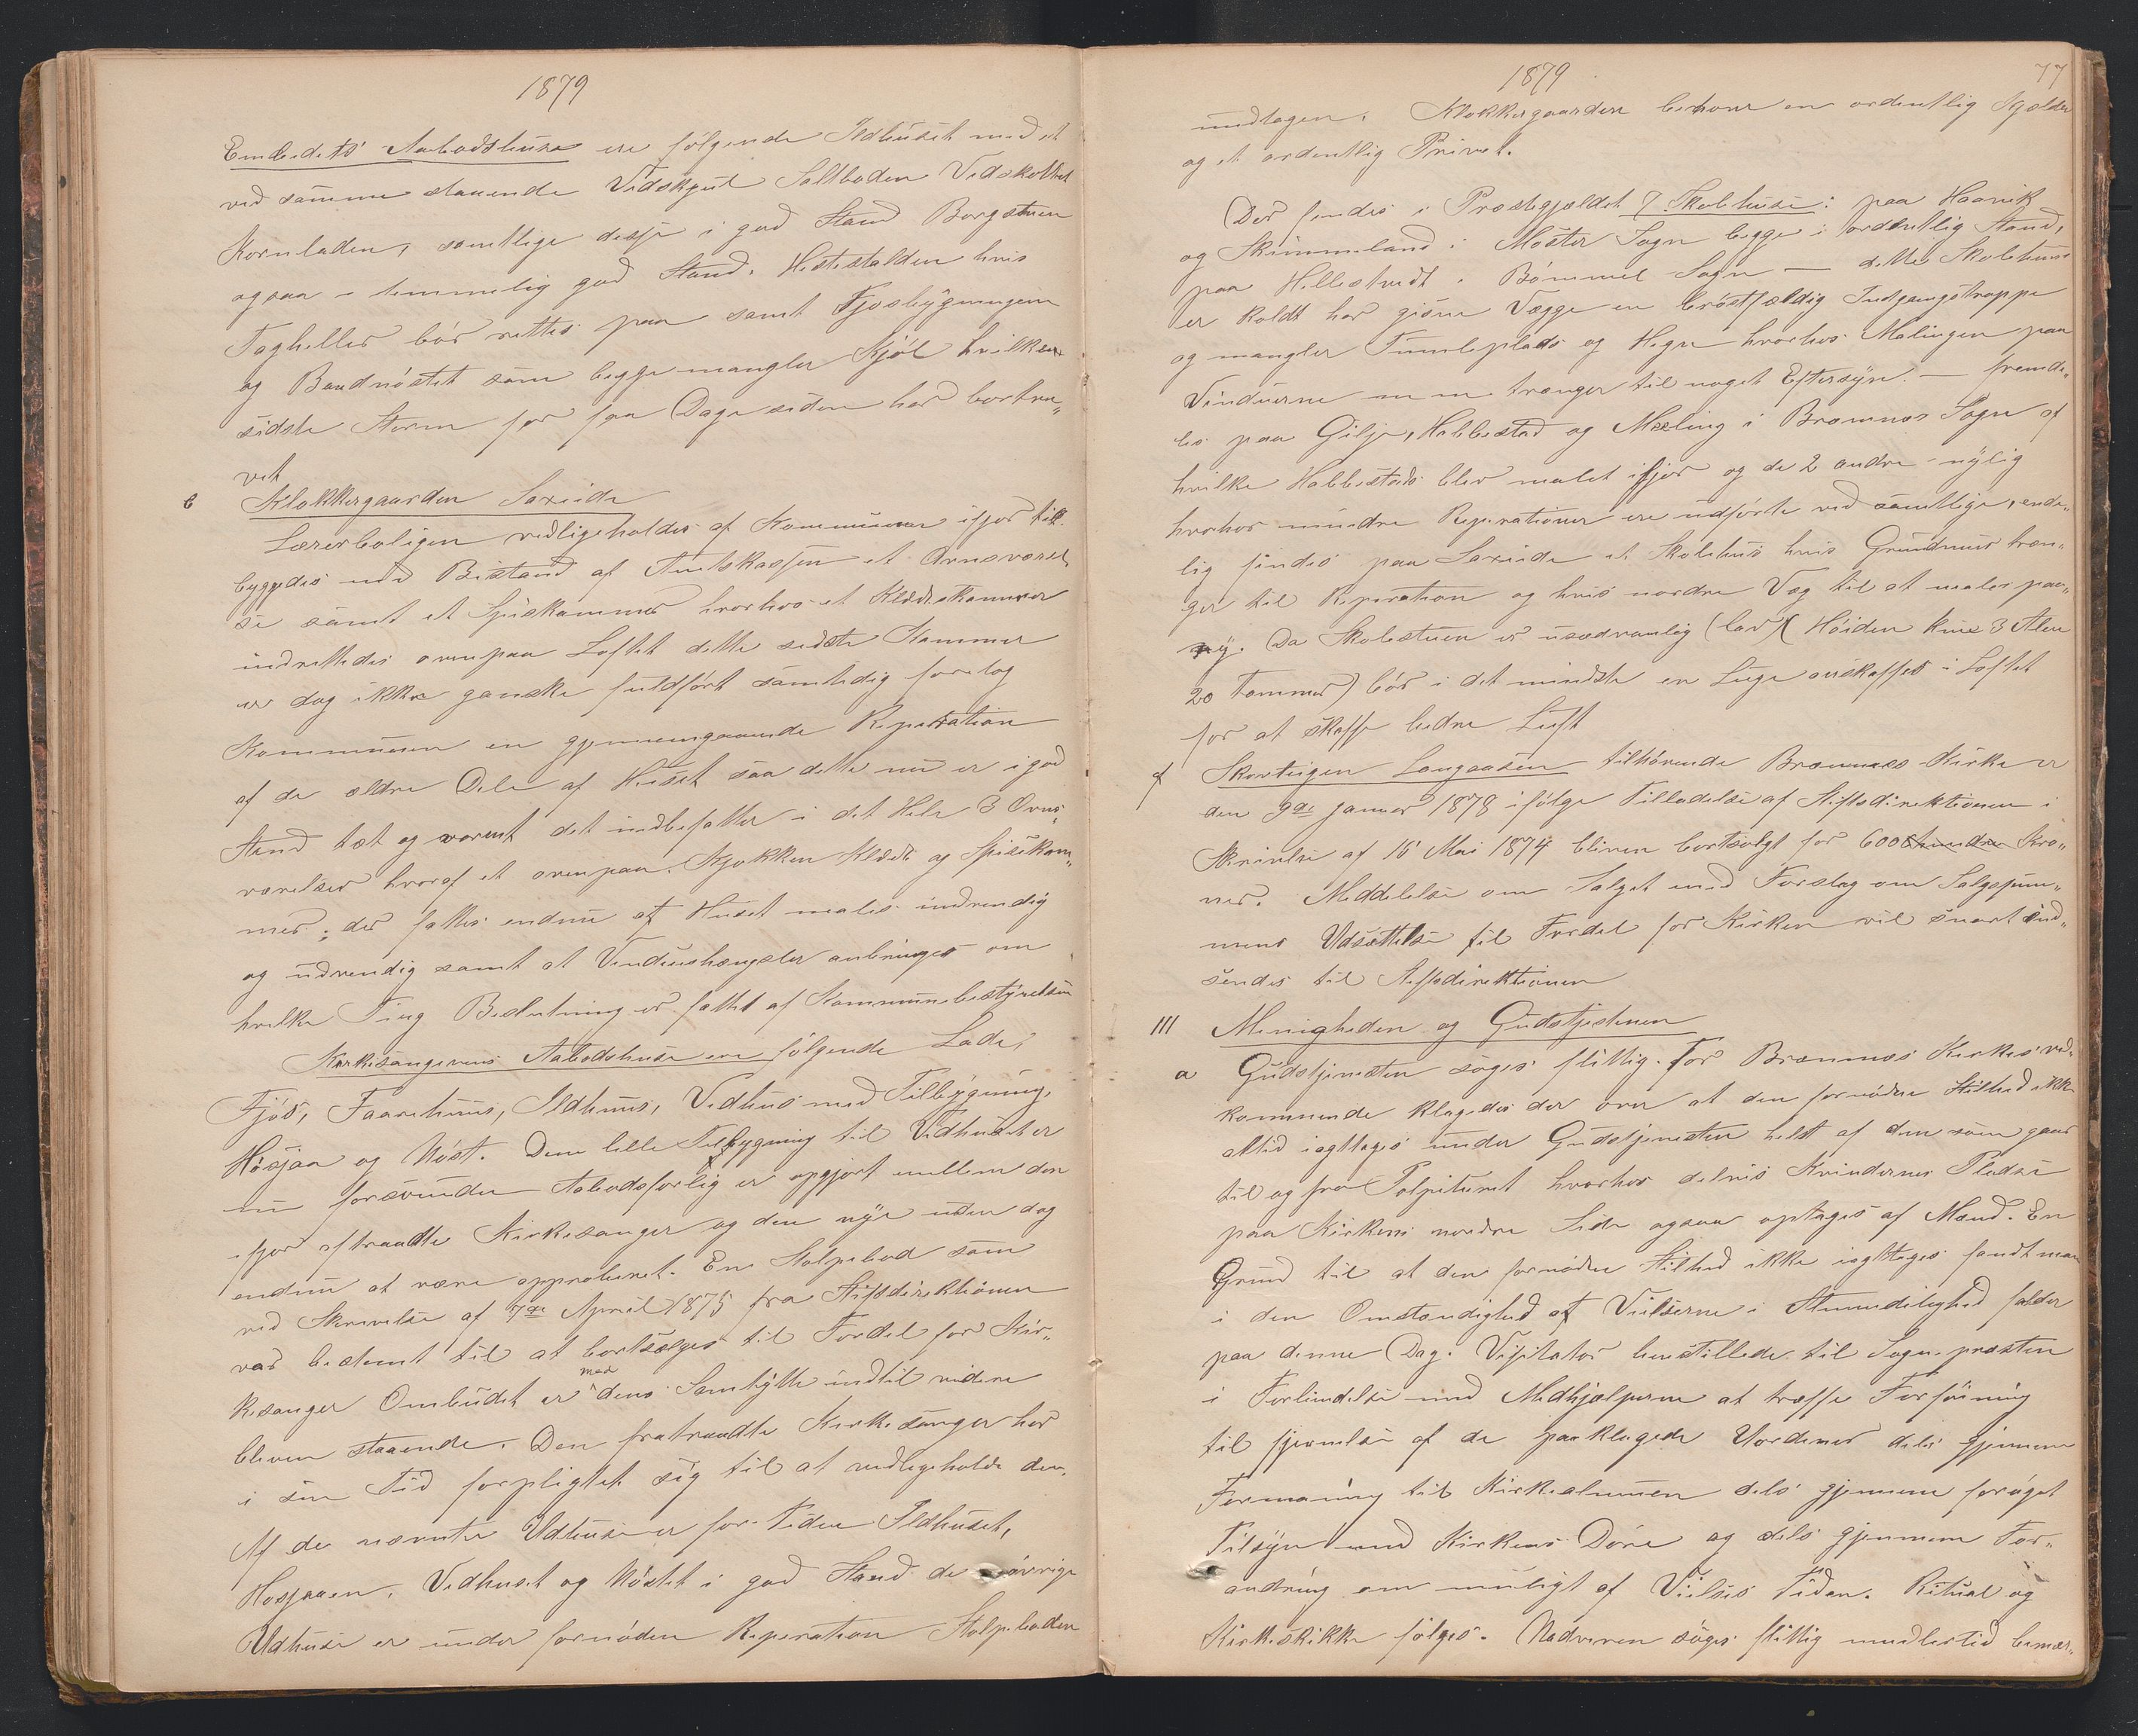 1879
Embedets Aabodshuse ere følgende Ildhuset med et
ved samme staaende Vedskjul Saltboden Vedskottet
Kornladen, samtlige disse i god Stand Borgstuen
ogsaa i temmelig god Stand. Hestestalden hvis
Tagheller bør rettes paa samt Fjøsbygningen
og Baadnøstet som begge mangler Kjøl hvilken
sidste Storm for faa Dage siden har bortre„
vet
e Klokkergaarden Sareide
Lærerboligen vedligeholdes af Kommunen ifjor til„
byggedes med Bistand af Amtskassen et Ovnsværel„
se samt et Spiskammer hvorhos et Klædeskammer
indrettedes ovenpaa Loftet dette sidste Kammer
er dog ikke ganske fuldført samtidig foretog
Kommunen en gjennemgaaende Reparation
af de ældre Dele af Huset saa dette nu er i god
Stand tæt og varmt det indbefatter i det Hele 3 Ovns„
værelser hvoraf et ovenpaa. Kjøkken Klæde og Spisekam„
mer; der fattes endnu at Huset males indvendig
og udvendig samt at Vindueshængsler anbringes om
hvilke Ting Beslutning er fattet af Kommunebestyrelsen
Kirkesangerens Aabodshuse ere følgende Lade,
Fjøs, Faarehuus, Ildhuus, Vedhus med Tilbygning,
Høsjaa og Nøst. Den lille Tilbygning til Vedhuset er
nu forsvunden Aabodsforlig er opgjort mellem den
ifjor aftraadte Kirkesanger og den nye uden dog
endnu at være approberet. En Stolpebod som
ved Skrivelse af 7de April 1875 fra Stiftsdirektionen
var bestemt til at bortsælges til Fordel for Kir„
kesanger Ombudet er med dens Samtykke indtil videre
bleven staaende. Den fratraadte Kirkesanger har
i sin Tid forpligtet sig til at vedligeholde den.
Af de nævnte Udhuse er for Tiden Ildhuset,
Høsjaaen, Vedhuset og Nøstet i god Stand de øvrige
Udhuse er under fornøden Reparation Stolpeboden
1879
77
undtagen. Klokkergaarden behøver en ordentlig Kjælder
og et ordentlig Privet.
Der findes i Præstegjældet 7 Skolehuse: paa Haavik
og Skimmeland i Moster Sogn begge i ordentlig Stand,
paa Hillestvedt i Bømmel Sogn — dette Skolehuus
er koldt har gisne Vægge en brøstfældig Indgangstrappe
og mangler Tumleplads og Hegn hvorhos Malingen paa
Vinduerne m m trænger til noget Eftersyn. — fremde„
les paa Gilje, Habbestad og Mæling i Bremnes Sogn af
hvilke Habbestads blev malet ifjor og de 2 andre nylig
hvorhos mindre Reparationer ere udførte ved samtlige, ende„
lig findes paa Sareide et Skolehus hvis Grundmur træn„
ger til Reparation og hvis nordre Væg til at males paa„
ny. Da Skolestuen er usædvanlig lav (Høiden kun 3 Alen
20 Tommer) bør i det mindste en Luge anskaffes i Loftet
for at skaffe bedre Luft
f Skovteigen Langaasen tilhørende Bremnes Kirke er
den 9de januar 1878 ifølge Tilladelse af Stiftsdirektionen i
Skrivelse af 16 Mai 1874 bleven bortsolgt for 600 Kro„
ner. Meddelelse om Salget med Forslag om Salgssum„
mens Udsættelse til Fordel for Kirken vil snart ind„
sendes til Stiftsdirektionen
III Menigheden og Gudstjenesten
a Gudstjenesten søges flittig. For Bremnes Kirkes ved„
kommende klagedes der over at den fornødne Stilhed ikke
altid iagttages under Gudstjenesten helst af dem som gaar
til og fra Polpituret hvorhos delvis Kvindernes Pladse
paa Kirkens nordre Side ogsaa optages af Mænd. En
Grund til at den fornødne Stilhed ikke iagttages fandt man
i den Omstændighed at Vielserne i Almindelighed falder
paa denne Dag. Visitator henstillede til Sognepræsten
i Forbindelse med Medhjælperne at træffe Forføining
til fjernelse af de paaklagede Uordener dels gjennem
Formaning til Kirkealmuen dels gjennem forøget
Tilsyn med Kirkens Døre og dels gjennem For„
andring om muligt af Vielses Tiden. Ritual og
Kirkeskikke følges. Nadveren søges flittig imidlertid bemær„